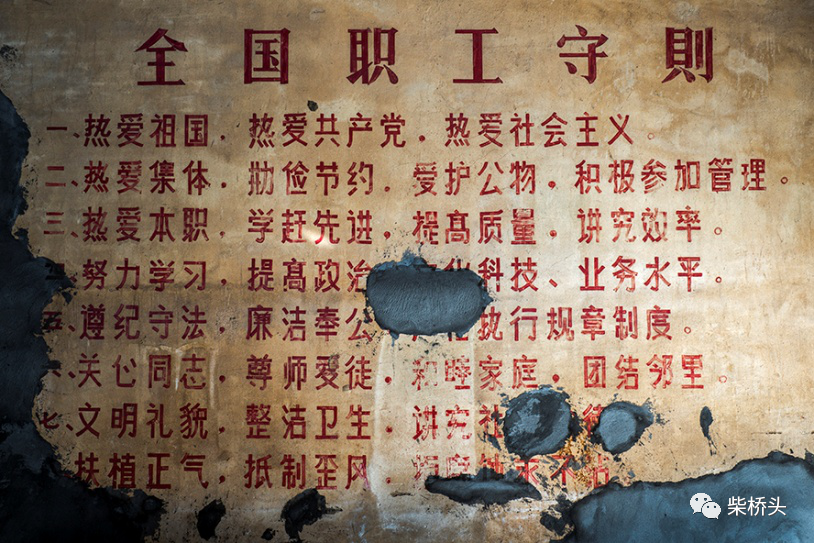 全国职工守則
一、热爱祖国，热爱共产党，热爱社会主义。
二、热爱集体，勤俭节约，爱护公物，积极参加管理。
三、热爱本职，学赶先进，提高质量，讲究效率。
努力学习，提高政治 科技、业务水平。
五、遵纪守法，廉洁奉公 执行规章制度。
关心同志，尊师爱徒，和睦家庭，团结邻里。
七、文明礼貌，整洁卫生，讲究社
扶植正气，抵制歪风，
柴桥头